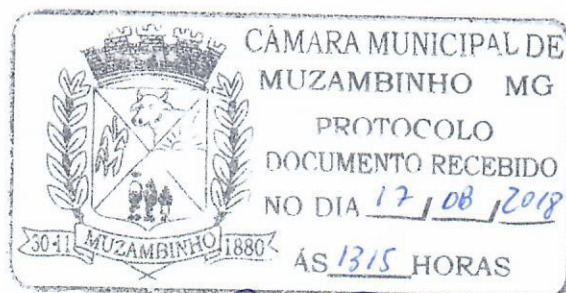 CÂMARA MUNICIPAL DE
MUZAMBINHO MG
PROTOCOLO
DOCUMENTO RECEBIDO
NO DIA 17 / 08 / 2018
ÁS 1315 HORAS
30-11 MUZAMBINHO 1880